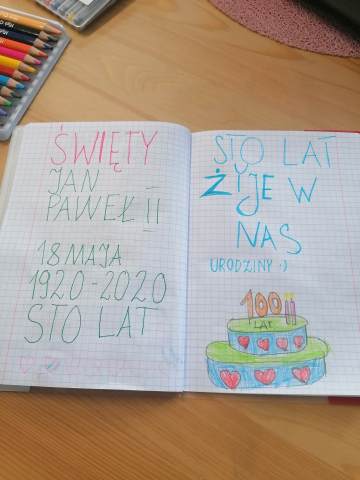 ŚWIĘTY
JAN
PAWEŁ II
18 MAJA
1920-2020
STO LAT
STO LAT
ŻYJE W
NAS
URODZINY :)
100
LAT